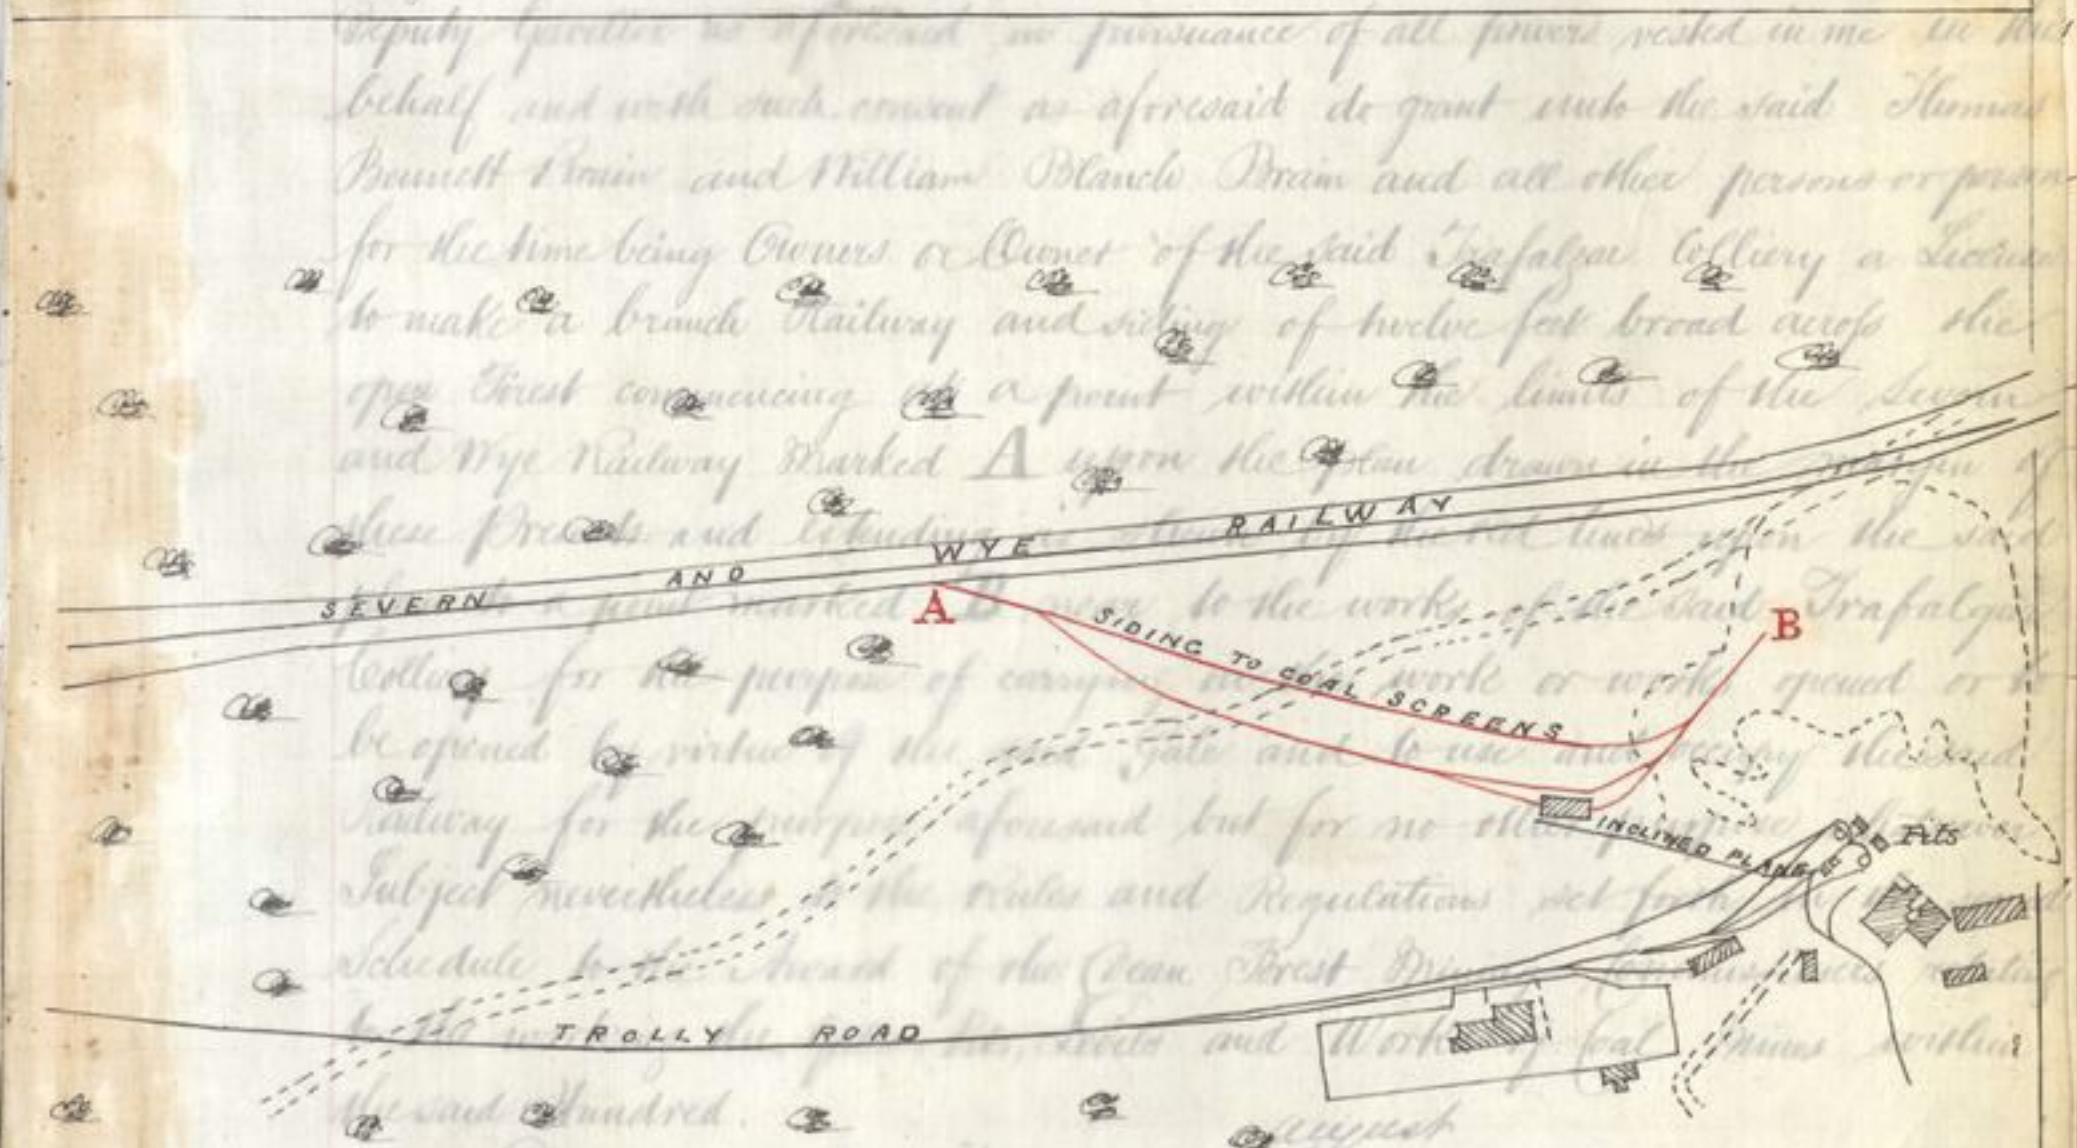 Deputy Gaveller as aforesaid in pursuance of all powers vested in me in this
behalf and with such consent as aforesaid do grant unto the said Thomas
Bennett Brain and William Blanch Brain and all other persons or person
for the time being Owners or Owner of the said Trafalgar Colliery a License
to make a branch Railway and siding of twelve feet broad across the
open Forest commencing at a point within the limits of the Severn
and Wye Railway Marked A upon the plan drawn in the margin of
these Presents and extending as shewn by the red lines upon the said
plan to a point marked B near to the works of the said Trafalgar
Colliery for the purpose of carrying on the work or works opened or to
be opened by virtue of the said Gale and to use and occupy the said
Railway for the purpose aforesaid but for no other purpose whatsoever
Subject nevertheless to the Rules and Regulations set forth in the
Schedule to the Award of the Dean Forest Mining Commissioners relative
to the working of Pits, Levels and Works of Coal Mines within
the said Hundred.
august
SEVERN AND WYE RAILWAY
A
SIDING TO COAL SCREENS
B
INCLINED PLANE
Pits
TROLLY ROAD